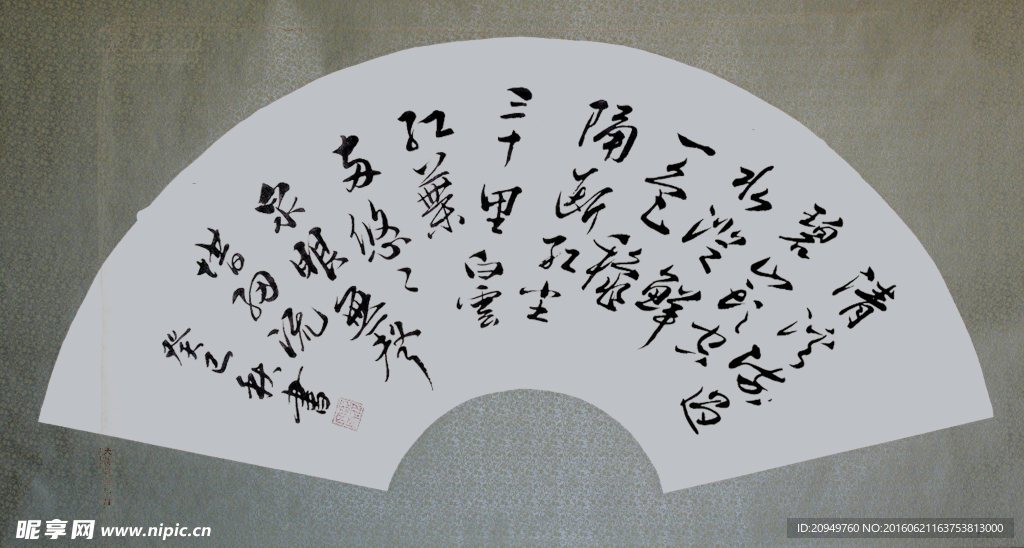 清溪流過
碧山頭空
水澄鮮
一色秋
隔斷紅塵
三十里白雲
紅葉
兩悠々
泉眼無聲
惜細流
癸巳秋書
昵享网 www.nipic.cn
ID:20949760 NO:20160621163753813000